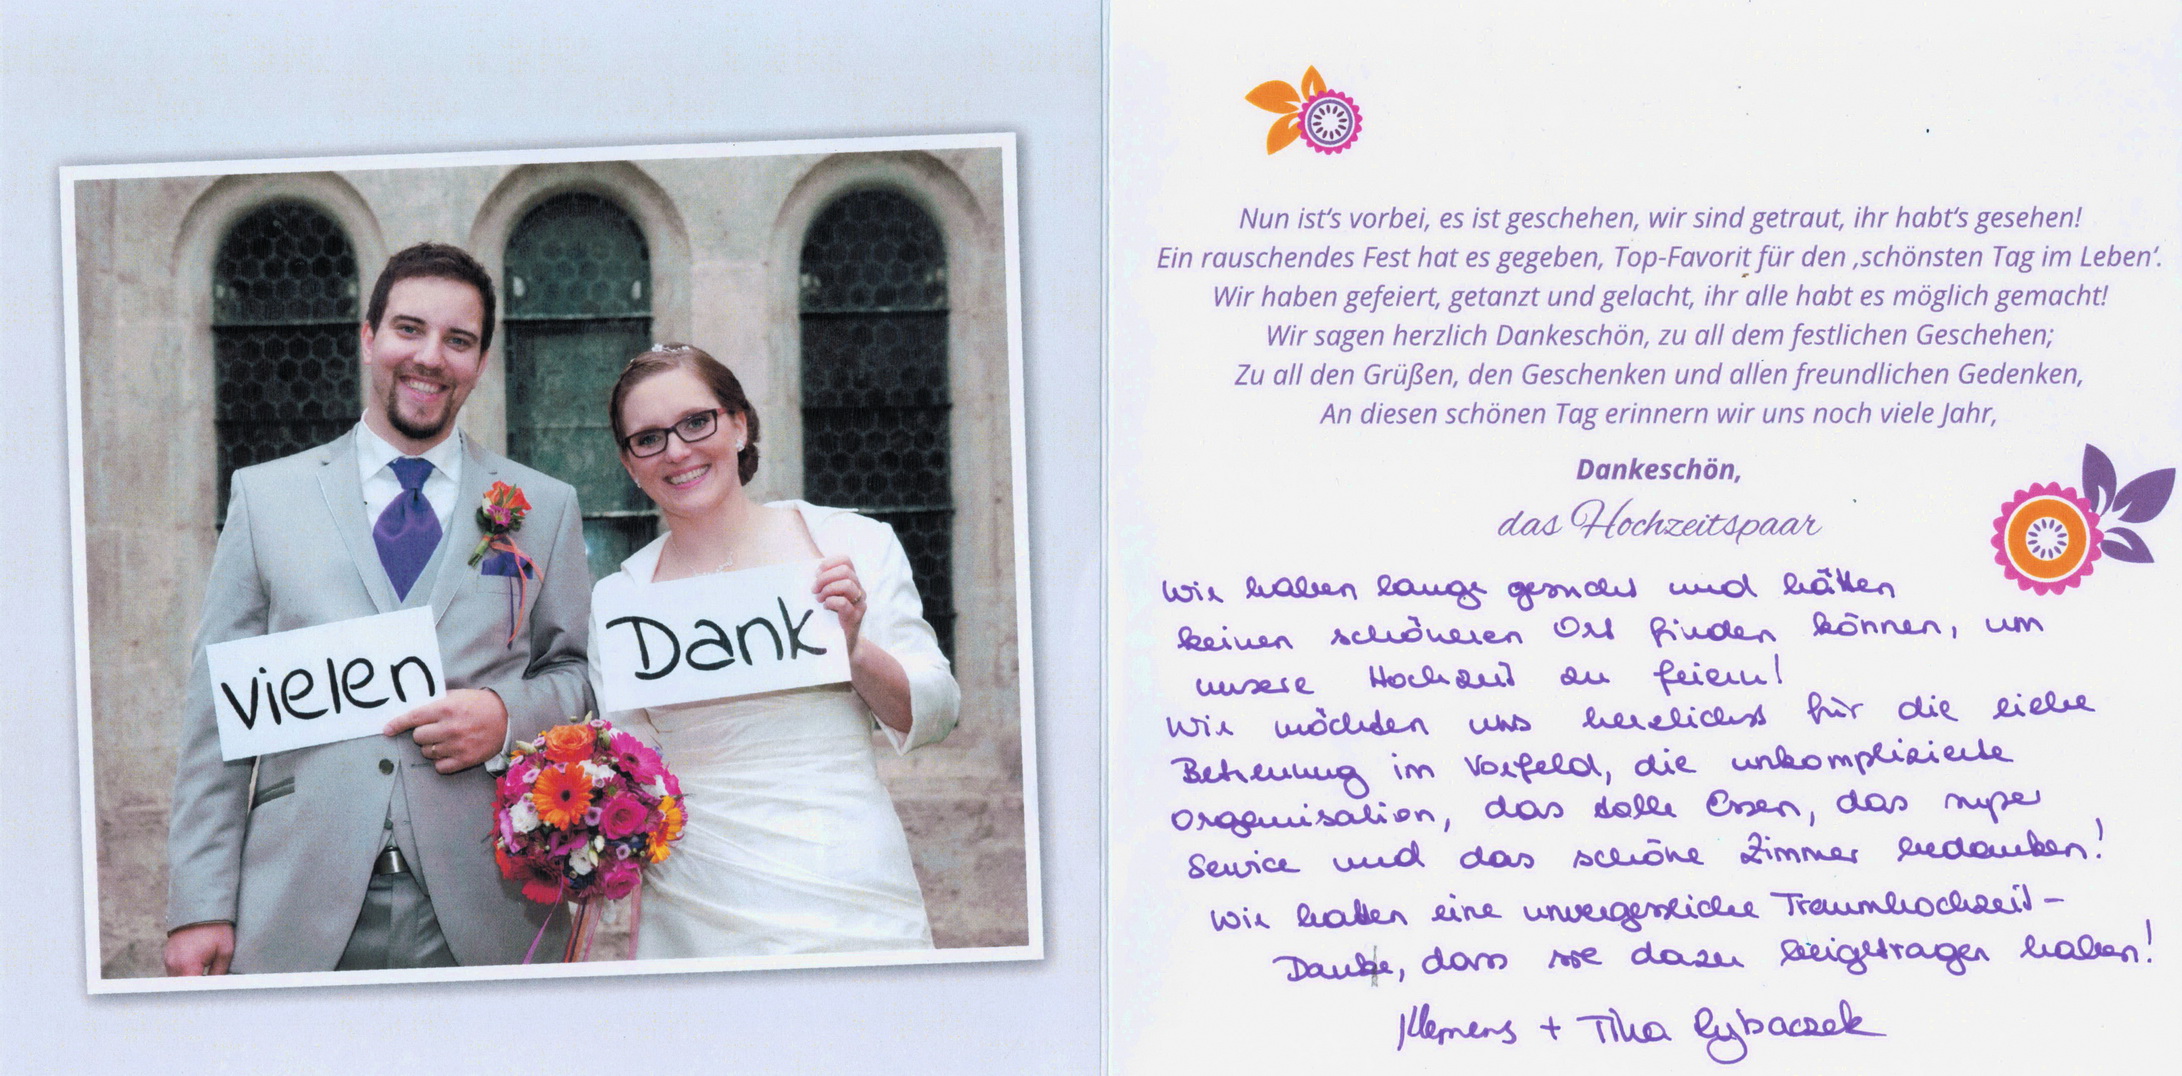 vielen
Dank
Nun ist's vorbei, es ist geschehen, wir sind getraut, ihr habt's gesehen!
Ein rauschendes Fest hat es gegeben, Top-Favorit für den ‚schönsten Tag im Leben‘.
Wir haben gefeiert, getanzt und gelacht, ihr alle habt es möglich gemacht!
Wir sagen herzlich Dankeschön, zu all dem festlichen Geschehen;
Zu all den Grüßen, den Geschenken und allen freundlichen Gedenken,
An diesen schönen Tag erinnern wir uns noch viele Jahr,
Dankeschön,
das Hochzeitspaar
Wir haben lange gesucht und hätten
keinen schöneren Ort finden können, um
unsere Hochzeit zu feiern!
Wir möchten uns herzlichst für die liebe
Betreuung im Vorfeld, die unkomplizierte
Organisation, das tolle Essen, das super
Service und das schöne Zimmer bedanken!
Wir hatten eine unvergessliche Traumhochzeit-
Danke, dass sie dazu beigetragen haben!
Klemens + Tina Rybaczek